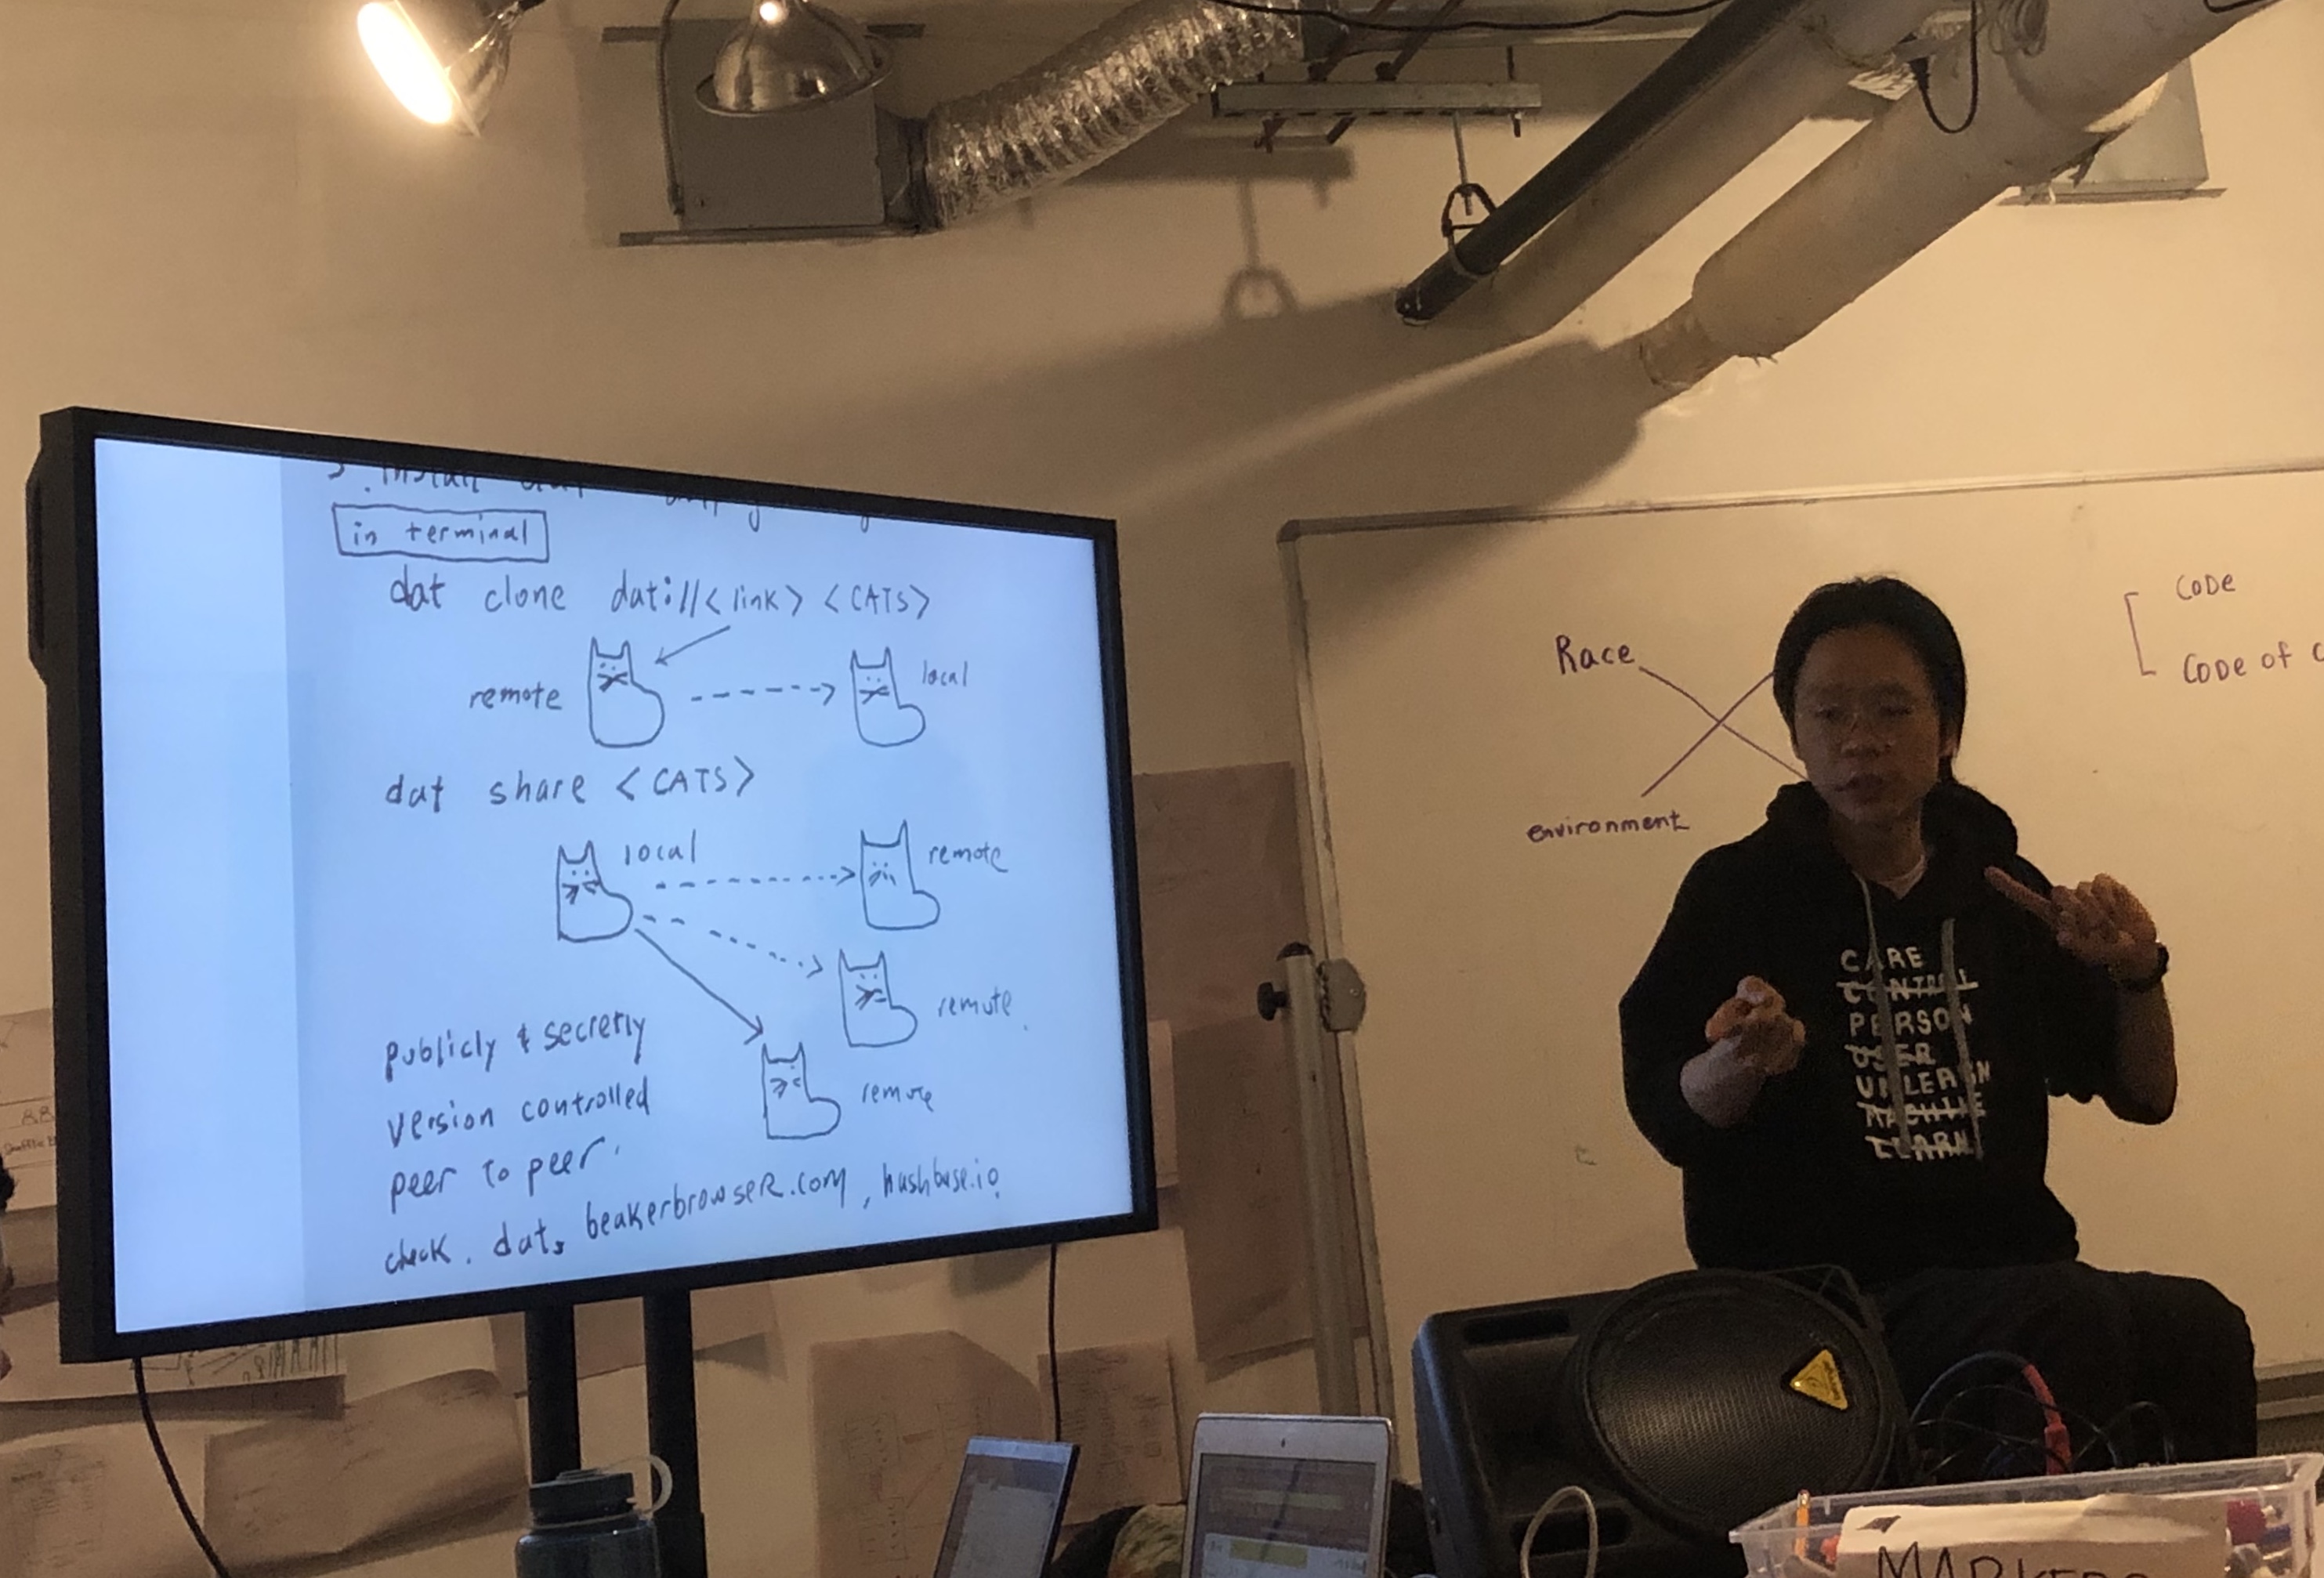 in terminal
dat clone dat://<link> <CATS>
remote
local
dat share <CATS>
local
remote
remote
remote
publicly & secretly
version controlled
peer to peer.
check. dat, beakerbrowser.com, hashbase.io
Race
environment
CODE
CODE OF
CARE
CONTROL
PERSON
USER
UNLEARN
MACHINE
LEARN
MARKERS